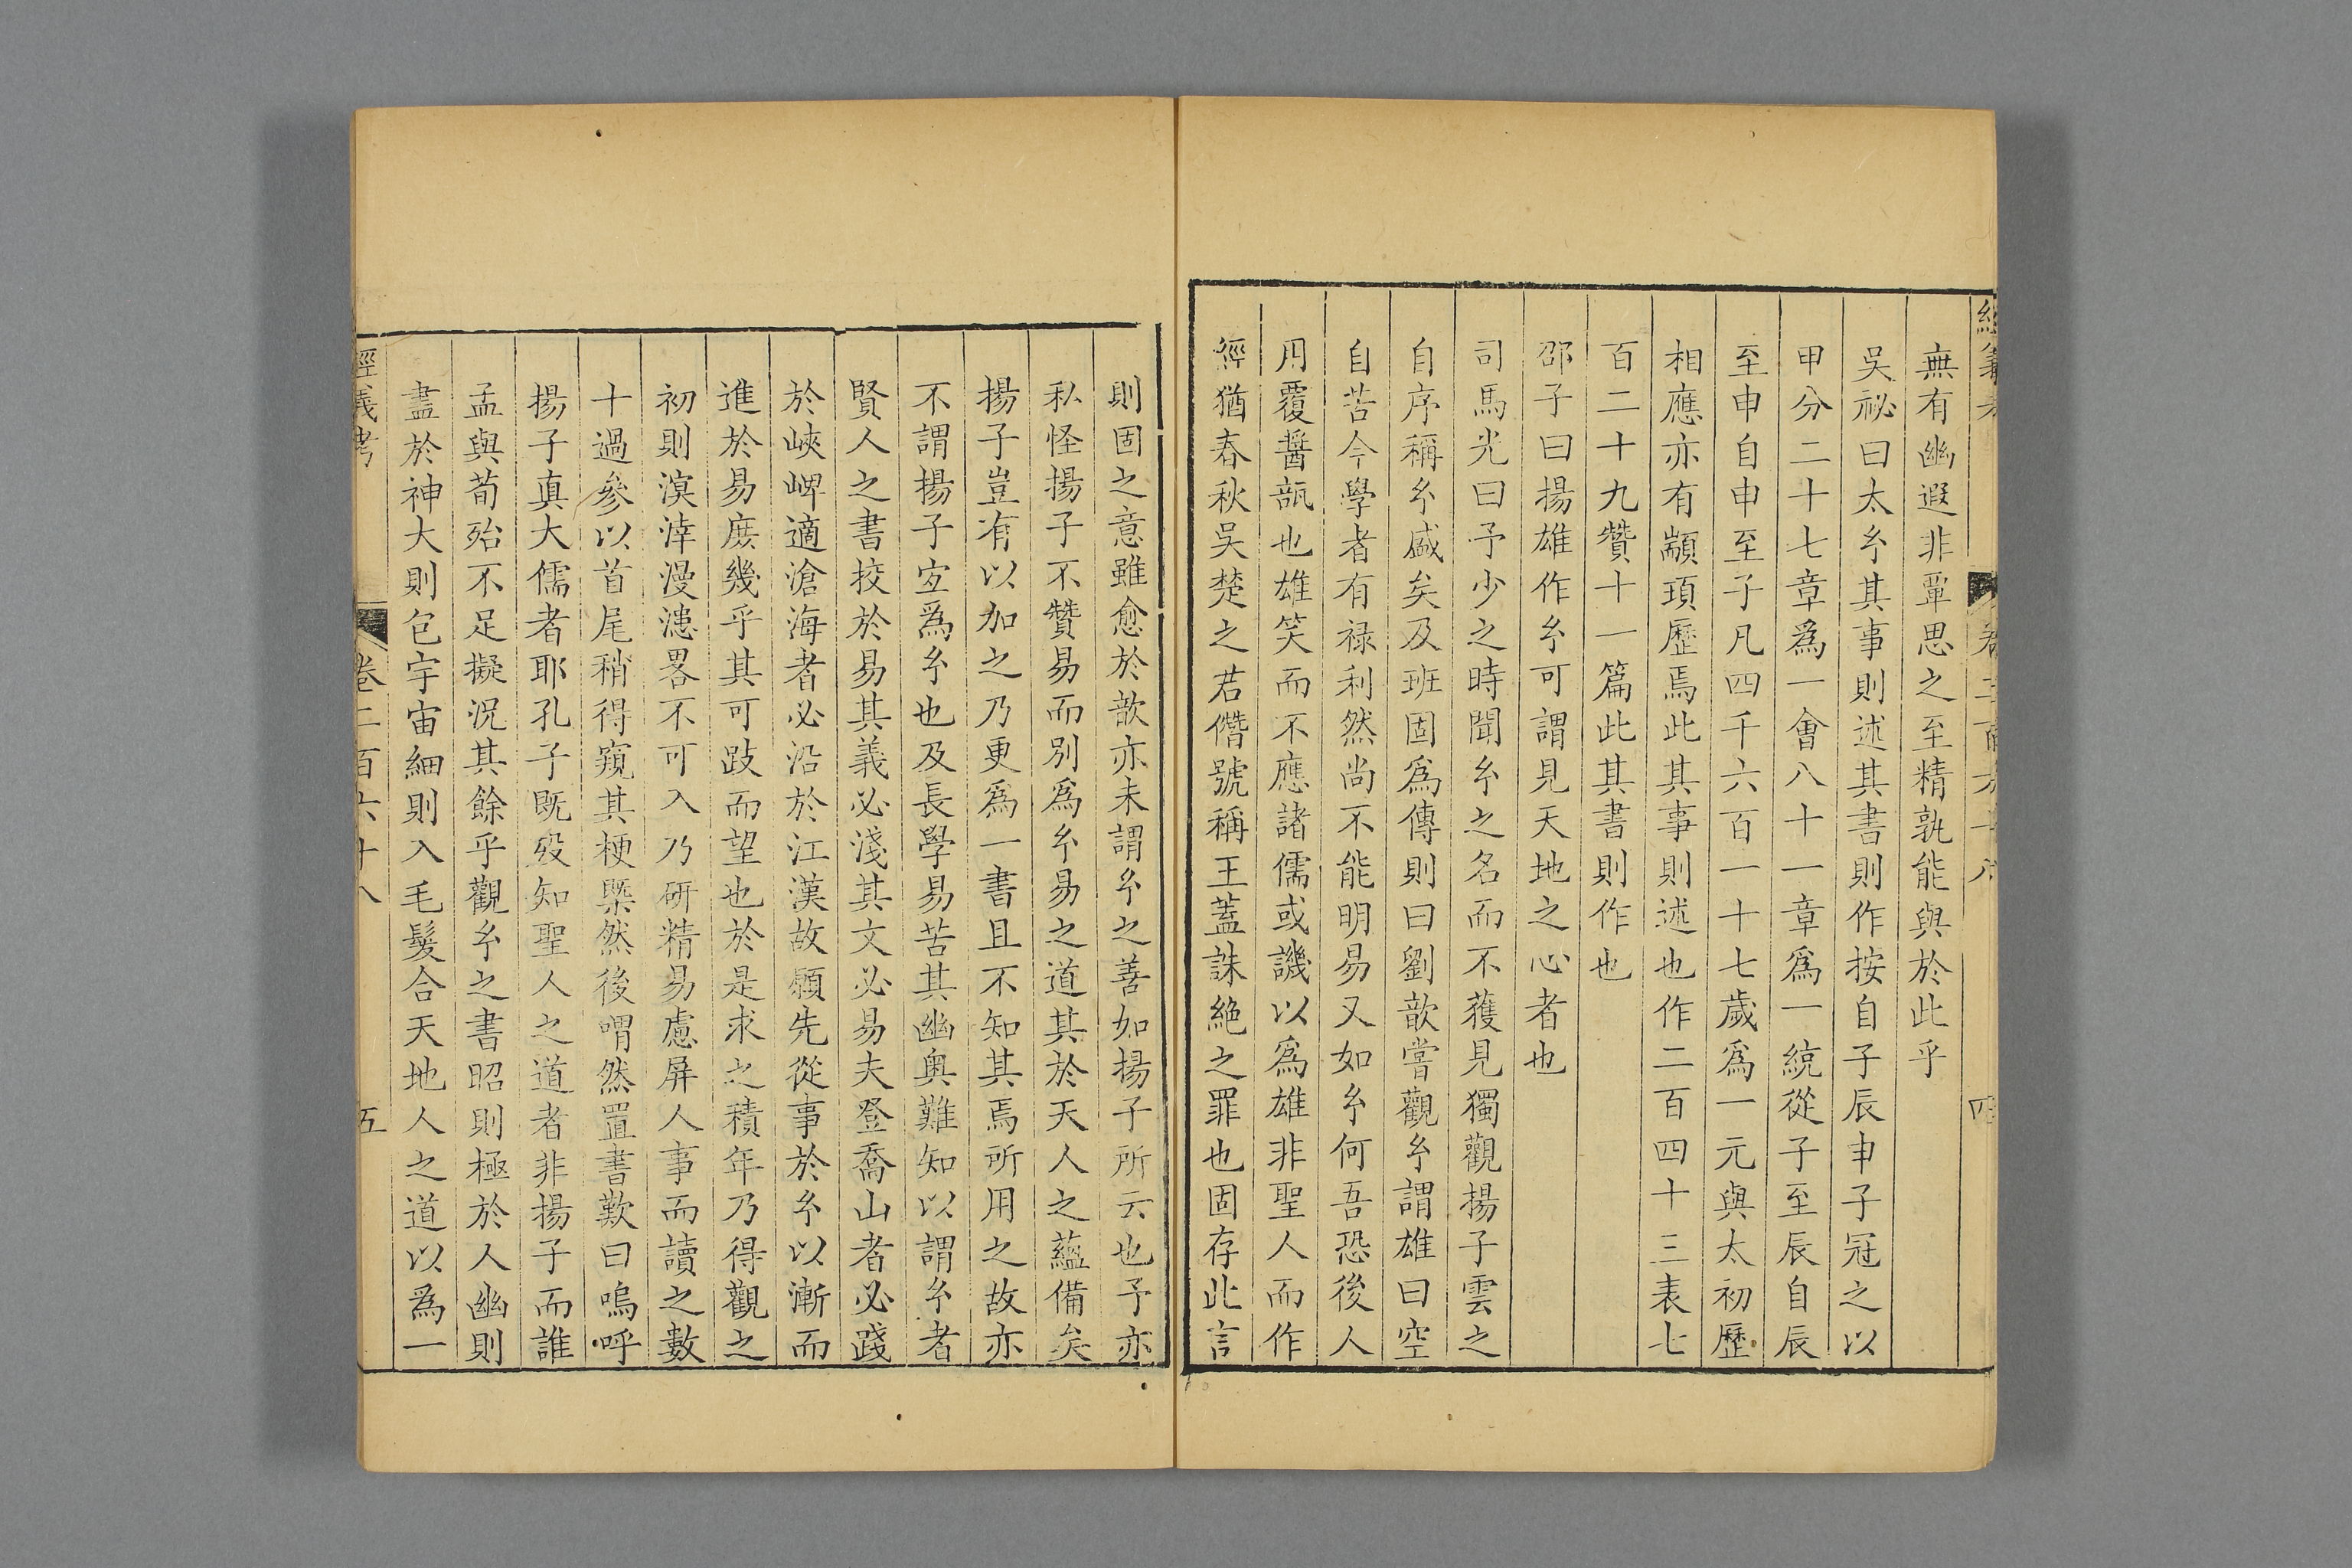 無有幽遐非覃思之至精孰能與於此乎
吳祕曰太𤣥其事則述其書則作按自子辰申子冠之以
甲分二十七章爲一會八十一章爲一統從子至辰自辰
至申自申至子凡四千六百一十七歲爲一元與太初歷
相應亦有顓頊歷焉此其事則述也作二百四十三表七
百二十九贊十一篇此其書則作也
邵子曰揚雄作𤣥可謂見天地之心者也
司馬光曰予少之時聞𤣥之名而不獲見獨觀揚子雲之
自序稱𤣥盛矣及班固爲傳則曰劉歆嘗觀𤣥謂雄曰空
自苦今學者有祿利然尚不能明易又如𤣥何吾恐後人
用覆醬瓿也雄笑而不應諸儒或譏以爲雄非聖人而作
經猶春秋吳楚之君僭號稱王蓋誅絶之罪也固存此言
則固之意雖愈於歆亦未謂𤣥之善如揚子所云也予亦
私怪揚子不贊易而別爲𤣥易之道其於天人之蘊備矣
揚子豈有以加之乃更爲一書且不知其焉所用之故亦
不謂揚子宜爲𤣥也及長學易苦其幽奥難知以謂𤣥者
賢人之書挍於易其義必淺其文必易夫登喬山者必踐
於峽崥適滄海者必沿於江漢故願先從事於𤣥以漸而
進於易庶幾乎其可跂而望也於是求之積年乃得觀之
初則溟涬漫漶畧不可入乃研精易慮屏人事而讀之數
十過參以首尾稍得窺其梗槩然後喟然置書歎曰嗚呼
揚子真大儒者耶孔子既歿知聖人之道者非揚子而誰
孟與荀殆不足擬況其餘乎觀𤣥之書昭則極於人幽則
盡於神大則包宇宙細則入毛髮合天地人之道以爲一
經義考 卷二百六十八 五